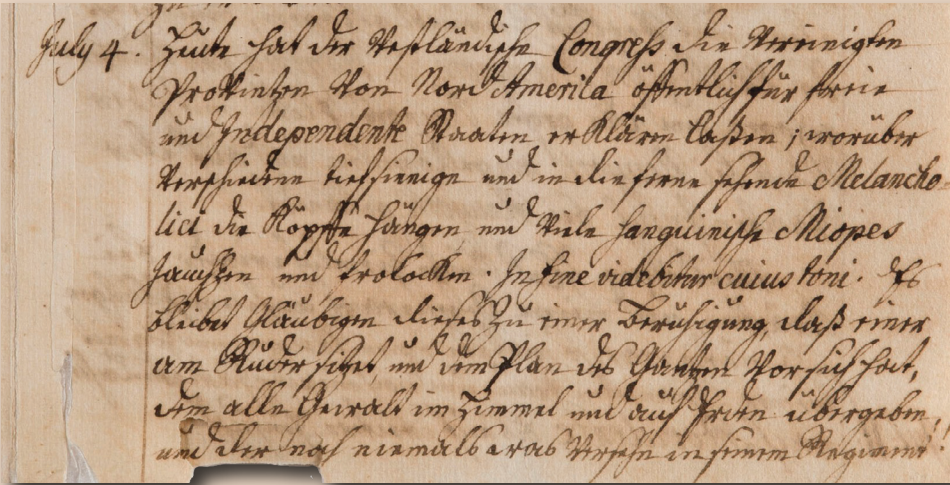 July 4. Heute hat der Vestländische Congress die Vereinigten
Provintzen von Nord America öffentlich für freie
und Independente Staaten erklären laßen; worüber
verschiedene tiefsinnige und in die ferne sehende Melancho-
lici die Köpffe hängen und viele sanguinische Miopes
jauchzen und frolocken. In fine videbitur cuius toni. Es
bleibet Gläubigen dieses zu einer Beruhigung, daß einer
am Ruder sitzet, und den Plan des Gantzen vor sich hat,
dem alle Gewalt im Himmel und auf Erden übergeben,
und der noch niemals was versehn in seinem Regiment!